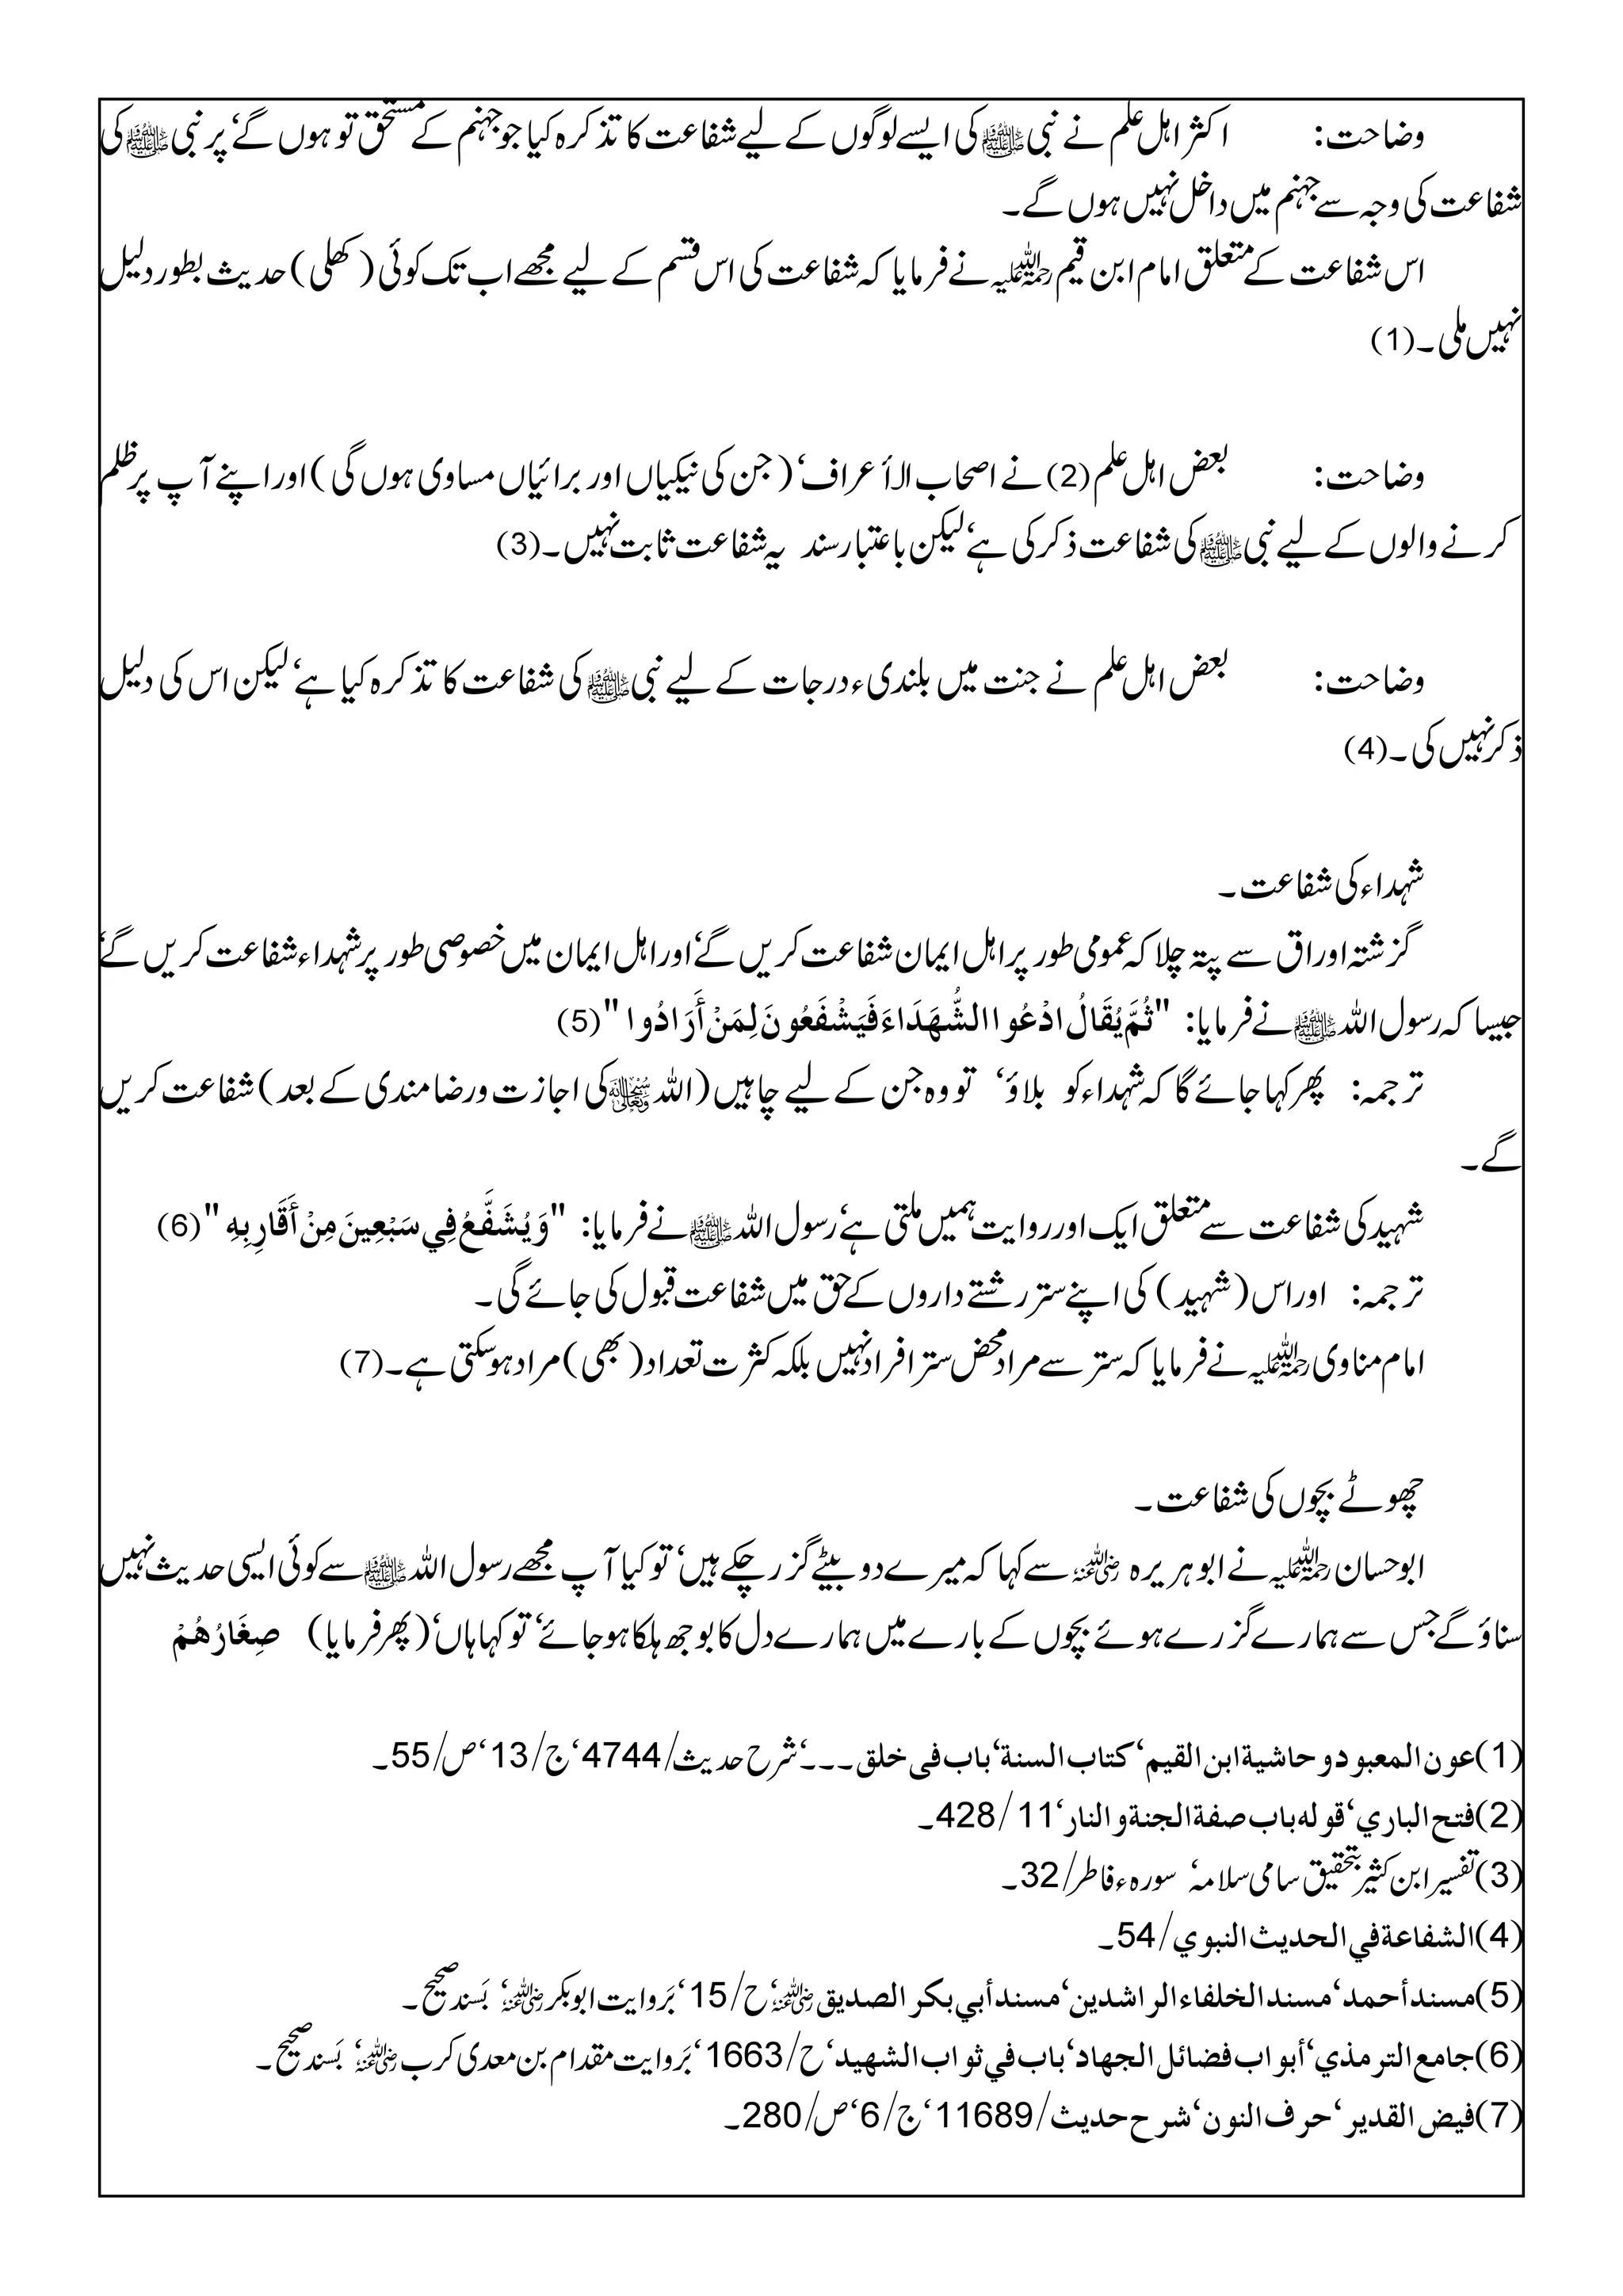 وضاحت: اکثر اہل علم نے نبی ﷺ کی ایسے لوگوں کے لیے شفاعت کا تذکرہ کیا جو جہنم کے مستحق تو ہوں گے‘ پر نبی ﷺ کی
شفاعت کی وجہ سے جہنم میں داخل نہیں ہوں گے۔
اس شفاعت کے متعلق امام ابن قیم رحمۃ اللہ علیہ نے فرمایا کہ شفاعت کی اس قسم کے لیے مجھے اب تک کوئی (کھلی) حدیث بطور دلیل
نہیں ملی۔(1)
وضاحت: بعض اہل علم(2) نے اصحاب الأعراف‘ (جن کی نیکیاں اور برائیاں مساوی ہوں گی) اور اپنے آپ پر ظلم
کرنے والوں کے لیے نبی ﷺ کی شفاعت ذکر کی ہے‘ لیکن باعتبار سند یہ شفاعت ثابت نہیں۔(3)
وضاحت: بعض اہل علم نے جنت میں بلندیء درجات کے لیے نبی ﷺ کی شفاعت کا تذکرہ کیا ہے‘ لیکن اس کی دلیل
ذکر نہیں کی۔(4)
شہداء کی شفاعت۔
گزشتہ اوراق سے پتہ چلا کہ عمومی طور پر اہل ایمان شفاعت کریں گے‘ اور اہل ایمان میں خصوصی طور پر شہداء شفاعت کریں گے‘
جیسا کہ رسول اللہ ﷺ نے فرمایا: "ثُمَّ يُقَالُ ادْعُوا الشُّهَدَاءَ فَيَشْفَعُونَ لِمَنْ أَرَادُوا"(5)
ترجمہ: پھر کہا جائے گا کہ شہداء کو بلاؤ‘ تو وہ جن کے لیے چاہیں (اللہ سبحانہ وتعالیٰ کی اجازت و رضامندی کے بعد) شفاعت کریں
گے۔
شہید کی شفاعت سے متعلق ایک اور روایت ہمیں ملتی ہے‘ رسول اللہ ﷺ نے فرمایا: "وَيُشَفَّعُ فِي سَبْعِينَ مِنْ أَقَارِبِهِ"(6)
ترجمہ: اور اس (شہید) کی اپنے ستر رشتے داروں کے حق میں شفاعت قبول کی جائے گی۔
امام مناوی رحمۃ اللہ علیہ نے فرمایا کہ ستر سے مراد محض ستر افراد نہیں بلکہ کثرت تعداد (بھی) مراد ہو سکتی ہے۔(7)
چھوٹے بچوں کی شفاعت۔
ابو حسان رحمۃ اللہ علیہ نے ابو ہریرہ رضی اللہ عنہ سے کہا کہ میرے دو بیٹے گزر چکے ہیں‘ تو کیا آپ مجھے رسول اللہ ﷺ سے کوئی ایسی حدیث نہیں
سناؤ گے جس سے ہمارے گزرے ہوئے بچوں کے بارے میں ہمارے دل کا بوجھ ہلکا ہو جائے‘ تو کہا ہاں‘ (پھر فرمایا) صِغَارُهُمْ
(1)عون المعبود و حاشية ابن القيم‘ كتاب السنة‘ باب فی خلق۔۔۔‘ شرح حدیث/4744‘ ج/13‘ ص/55۔
(2)فتح الباري‘ قوله باب صفة الجنة و النار‘ 11/428۔
(3)تفسیر ابن کثیر بتحقیق سامی سلامہ‘ سورہء فاطر/32۔
(4)الشفاعة في الحديث النبوي/54۔
(5)مسند أحمد‘ مسند الخلفاء الراشدين‘ مسند أبي بكر الصديق رضی اللہ عنہ‘ ح/15‘ بَروایت ابوبکر رضی اللہ عنہ‘ بَسند صحیح۔
(6)جامع الترمذي‘ أبواب فضائل الجهاد‘ باب في ثواب الشهيد‘ ح/1663‘ بَروایت مقدام بن معدی کرب رضی اللہ عنہ‘ بَسند صحیح۔
(7)فيض القدير‘ حرف النون‘ شرح حدیث/11689‘ ج/6‘ ص/280۔